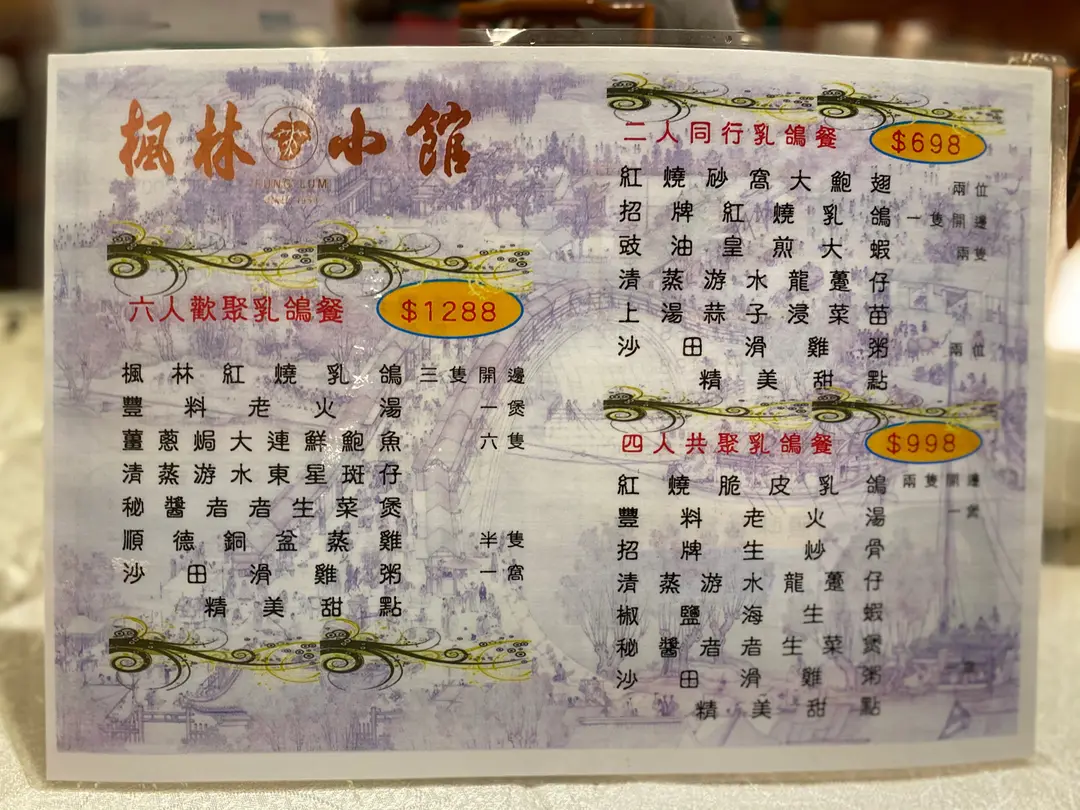 楓林小館
FUNG LUM
六人歡聚乳鴿餐 $1288
楓林紅燒乳鴿 三隻開邊
豐料老火湯 一煲
薑蔥焗大連鮮鮑魚 六隻
清蒸游水東星斑仔
秘醬㸆㸆生菜煲
順德銅盆蒸雞 半隻
沙田滑雞粥 一窩
精美甜點
二人同行乳鴿餐 $698
紅燒砂窩大鮑翅 兩位
招牌紅燒乳鴿 一隻開邊
豉油皇煎大蝦 兩隻
清蒸游水龍躉仔
上湯蒜子浸菜苗
沙田滑雞粥 兩位
精美甜點
四人共聚乳鴿餐 $998
紅燒脆皮乳鴿 兩隻開邊
豐料老火湯 一煲
招牌生炒骨
清蒸游水龍躉仔
椒鹽海生蝦
秘醬㸆㸆生菜煲
沙田滑雞粥
精美甜點